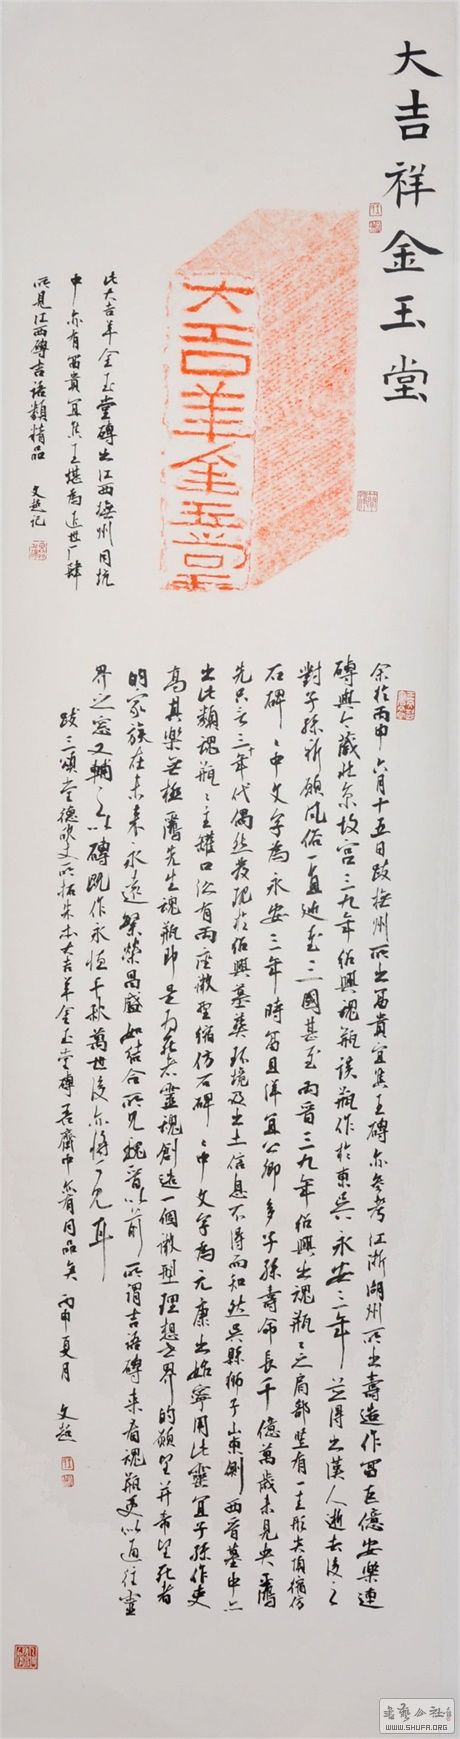 大吉祥金玉堂
大吉羊金玉堂
此大吉羊金玉堂磚出江西撫州同坑
中亦有富貴宜侯王堪為近世厂肆
所見江西磚吉語類精品 文超记
余於丙申六月十五日跋撫州所出富貴宜侯王磚亦參考江浙湖州所出壽造作富巨億安樂連
磚與今藏北京故宮三九年紹興魂瓶該瓶作於東吳永安三年 並得出漢人逝去後之
對子孫祈願風俗一直延至三國甚至兩晋三九年紹興出魂瓶之肩部豎有一圭形尖頂縮仿
石碑 中文字為永安三年時富且洋宜公卿多子孫壽命長千億萬歲未見央
先只言三十年代偶然發現於紹興墓葬環境及出土信息不得而知然吳縣獅子山東側西晋墓中亦
出此類魂瓶 主罐口沿有兩座微型縮仿石碑 中文字為元康出始寧用此靈宜子孫作吏
高其樂無極 先生魂瓶即是為死者靈魂創造一個微型理想世界的願望并希望死者
的家族在未来永遠繁榮昌盛如結合所見魏晋以前所謂吉語磚来看魂瓶更似通往靈
界之窓又輔之以磚既作永恒千秋萬世後亦將可見耳
跋三頌堂德欣文所拓朱本大吉羊金玉堂磚吾齋中亦有同品矣 丙申夏月 文超
書藝公社
WWW.SHUFA.ORG